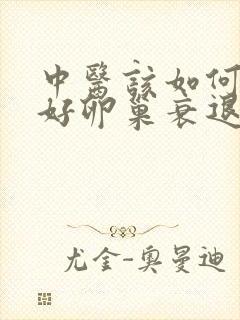 中醫該如何
好卵巢衰退
尤金-奧曼迪